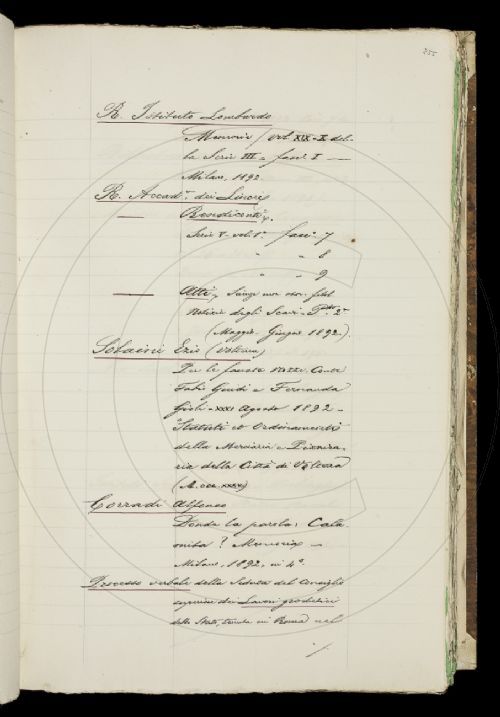 255
R. Istituto Lombardo
Memorie / vol. XIX-X del-
la Serie III - fasc. I —
Milano, 1892.
R. Accad.ᵃ dei Lincei
— Rendiconti,
Serie V- vol. 1º fasc. 7
" " 8
" " 9
— Atti, Scienze mor. stor. filol
Notizie degli Scavi - P.te 2ª
(Maggio - Giugno 1892).
Solaini Ezio (Volterra)
Per le fauste nozze Conte
Guidi e Fernanda
Gioli - XXXI Agosto 1892 -
Statuti et Ordinamenti
della Merciaria e Pizzica
ria della Città di Volterra
(A. CCC. XXXX)
Corradi Alfonso
Donde la parola: Cala
mita? Memoria —
Milano, 1892, in 4º.
Processo verbale della Seduta del Consiglio
superiore dei Lavori geodetici
dello Stato, tenuta in Roma nel
./.